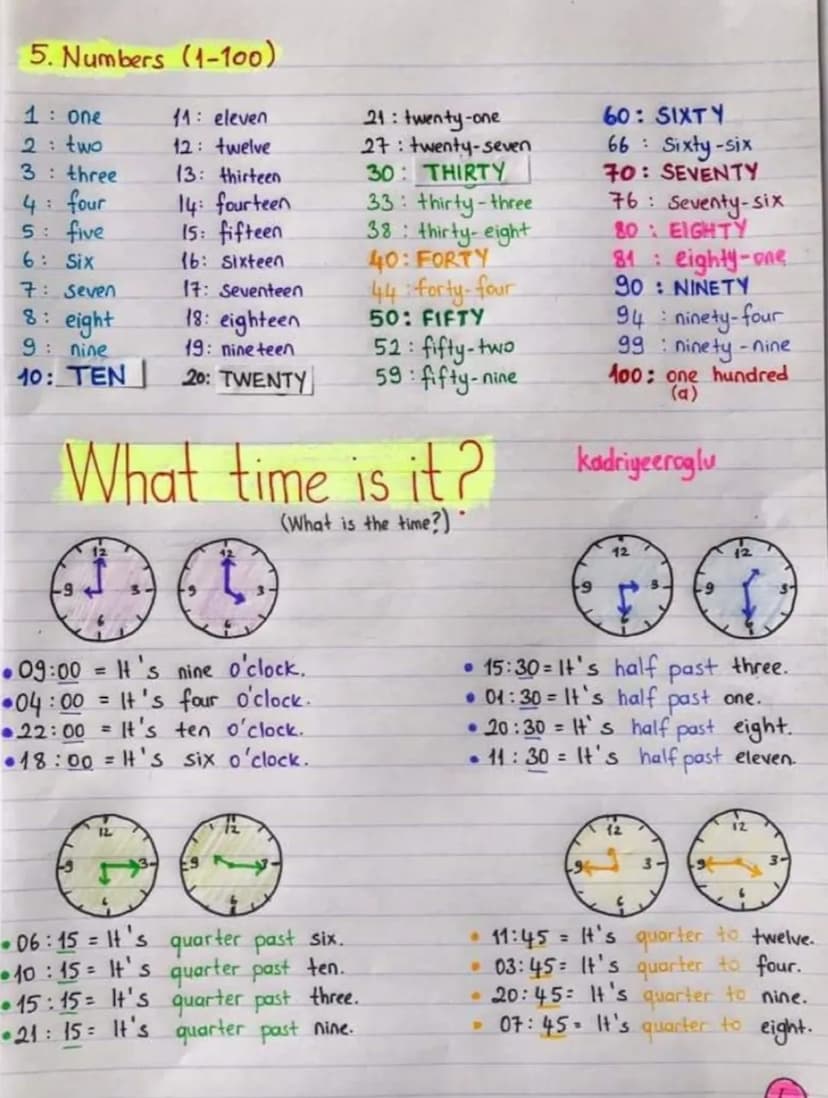 5. Numbers (1-100)
1 : one
2 : two
3 : three
4 : four
5 : five
6 : six
7 : seven
8 : eight
9 : nine
10 : TEN
11 : eleven
12 : twelve
13 : thirteen
14 : fourteen
15 : fifteen
16 : sixteen
17 : seventeen
18 : eighteen
19 : nineteen
20 : TWENTY
21 : twenty-one
27 : twenty-seven
30 : THIRTY
33 : thirty-three
38 : thirty-eight
40 : FORTY
44 : forty-four
50 : FIFTY
52 : fifty-two
59 : fifty-nine
60 : SIXTY
66 : Sixty-six
70 : SEVENTY
76 : seventy-six
80 : EIGHTY
81 : eighty-one
90 : NINETY
94 : ninety-four
99 : ninety-nine
100 : one hundred
(a)
What time is it?
kadriyeeroglu
(What is the time?)
12
9 3
6
12
9 3
6
12
9 3
6
12
9 3
6
09:00 = It's nine o'clock.
04:00 = It's four o'clock.
22:00 = It's ten o'clock.
18:00 = It's six o'clock.
15:30 = It's half past three.
01:30 = It's half past one.
20:30 = It's half past eight.
11:30 = It's half past eleven.
12
9 3
6
12
9 3
6
12
9 3
6
12
9 3
6
06:15 = It's quarter past six.
10:15 = It's quarter past ten.
15:15 = It's quarter past three.
21:15 = It's quarter past nine.
11:45 = It's quarter to twelve.
03:45 = It's quarter to four.
20:45 = It's quarter to nine.
07:45 = It's quarter to eight.